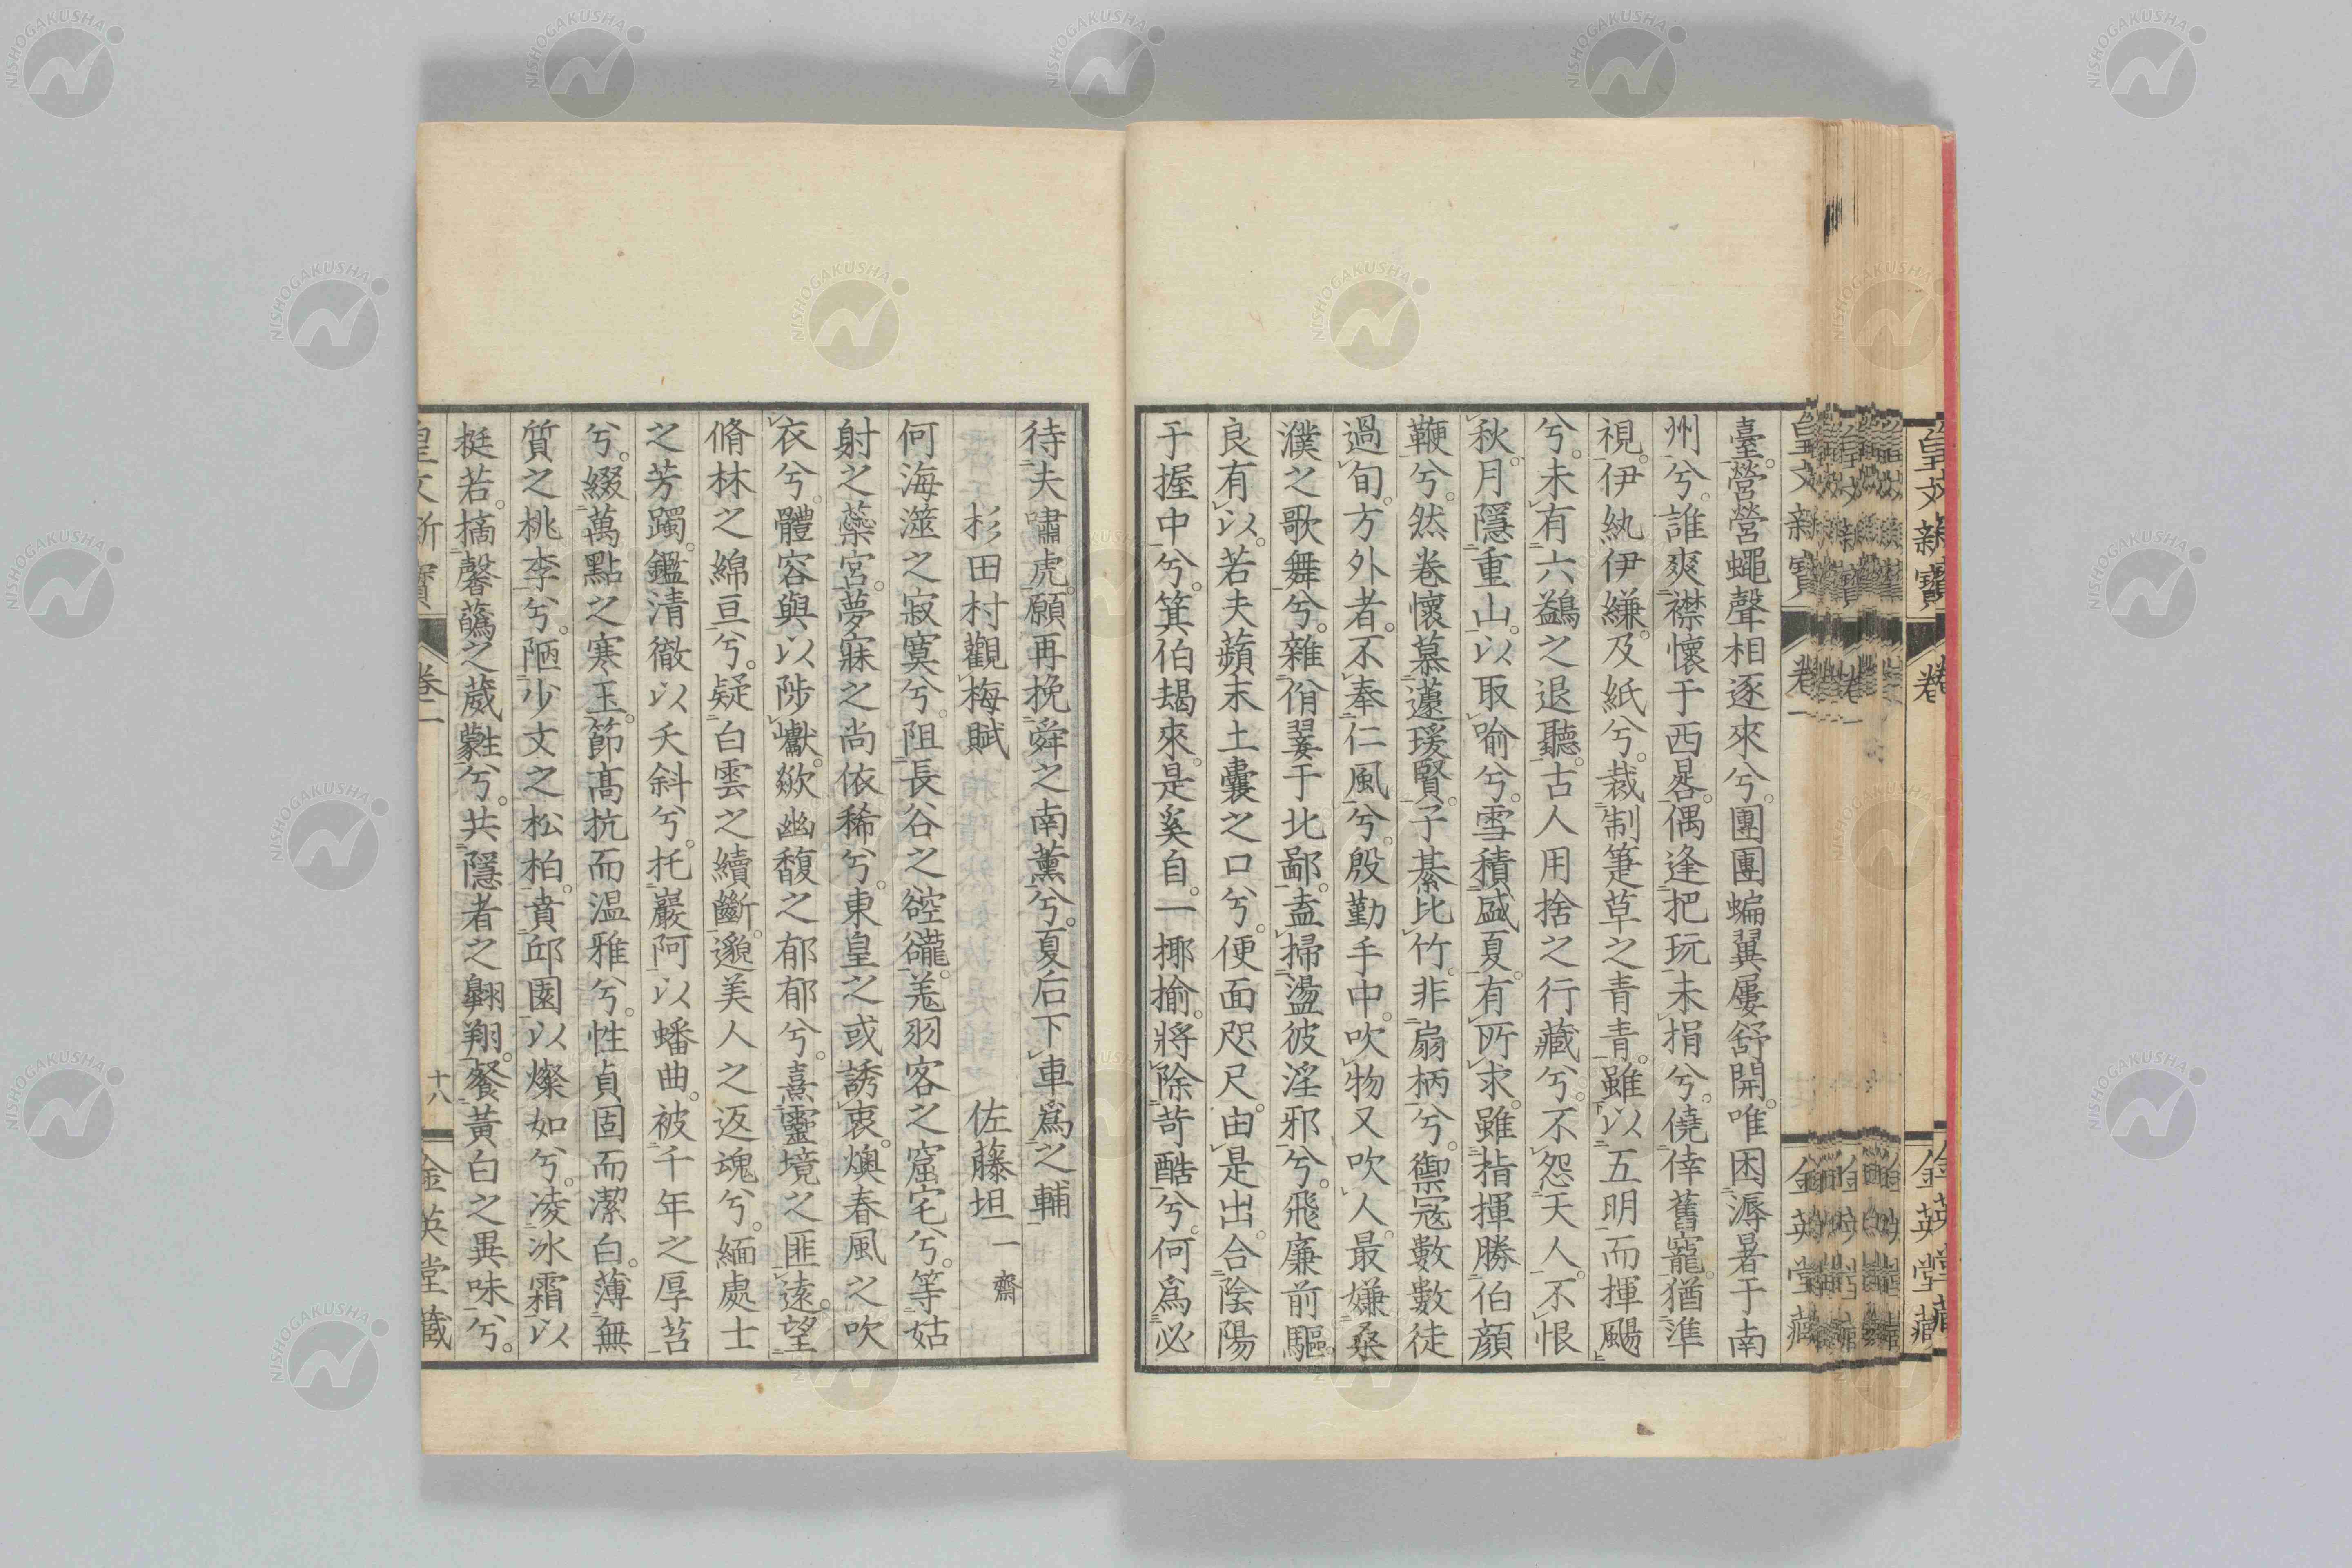 臺。營營蠅聲相逐來兮。團團蝙翼屢舒開。唯困溽暑于南
州兮。誰爽襟懷于西晷。偶逢把玩未捐兮。僥倖舊寵。猶準
視。伊紈伊縑。及紙兮。裁制箑草之青青。雖以五明而揮颺
兮。未有六鷁之退聽。古人用捨之行藏兮。不怨天人。不恨
秋。月隱重山。以取喻兮。雪積盛夏。有所求。雖指揮勝伯顏
鞭兮。然卷懷慕蘧瑗賢。子綦比竹。非扇柄兮。禦冦數數徒
過旬。方外者。不奉仁風兮。殷勤手中。吹物又吹人。最嫌桑
濮之歌舞兮。雜佾翣于比鄙。盍掃盪彼淫邪兮。飛廉前驅。
良有以。若夫蘋末土囊之口兮。便面咫尺。由是出。合陰陽
于握中兮。箕伯朅來。是奚自。一揶揄。將除苛酷兮。何爲必
待夫嘯虎。願再挽舜之南薰兮。夏后下車爲之輔
杉田村觀梅賦 佐藤坦 一齋
何海澨之寂寞兮。阻長谷之谾谾。羌羽客之窟宅兮。等姑
射之蘂宮。夢寐之尚依稀兮。東皇之或誘衷。燠春風之吹
衣兮。體容與以陟巘。歘幽馥之郁郁兮。熹靈境之匪遠。望
脩林之綿亘兮。疑白雲之續斷。邈美人之返魂兮。緬處士
之芳躅。鑑清徹以夭斜兮。托巖阿以蟠曲。被千年之厚苔
兮。綴萬點之寒玉。節髙抗而温雅兮。性貞固而潔白。薄無
質之桃李兮。陋少文之松柏。賁邱園以燦如兮。凌冰霜以
挺若。摘馨之葳兮。共隱者之翱翔。餐黃白之異味兮。
皇文新寶 卷二 十八 金英堂藏
皇文新寶 卷一 金英堂藏